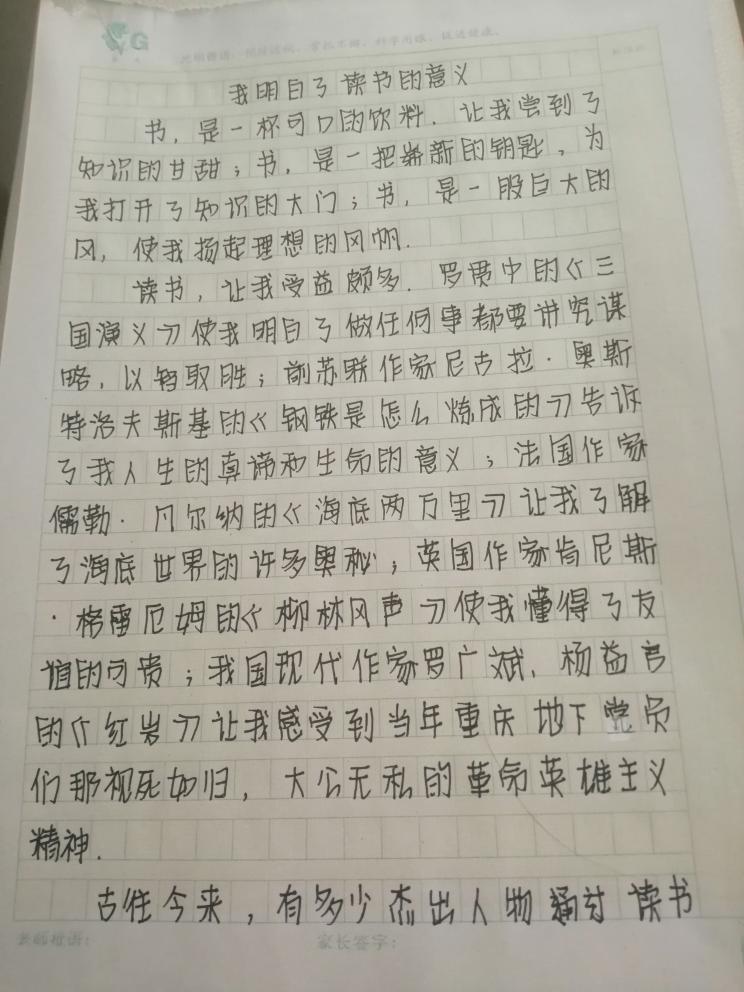 G
我明白了读书的意义
书，是一杯可口的饮料．让我尝到了
知识的甘甜；书，是一把崭新的钥匙，为
我打开了知识的大门；书，是一股巨大的
风，使我扬起理想的风帆．
读书，让我受益颇多．罗贯中的《三
国演义》使我明白了做任何事都要讲究谋
略，以智取胜；前苏联作家尼古拉·奥斯
特洛夫斯基的《钢铁是怎么炼成的》告诉
了我人生的真谛和生命的意义；法国作家
儒勒·凡尔纳的《海底两万里》让我了解
了海底世界的许多奥秘；英国作家肯尼斯
·格雷厄姆的《柳林风声》使我懂得了友
谊的可贵；我国现代作家罗广斌、杨益言
的《红岩》让我感受到当年重庆地下党员
们那视死如归，大公无私的革命英雄主义
精神．
古往今来，有多少杰出人物通过读书
老师短语：
家长签字：